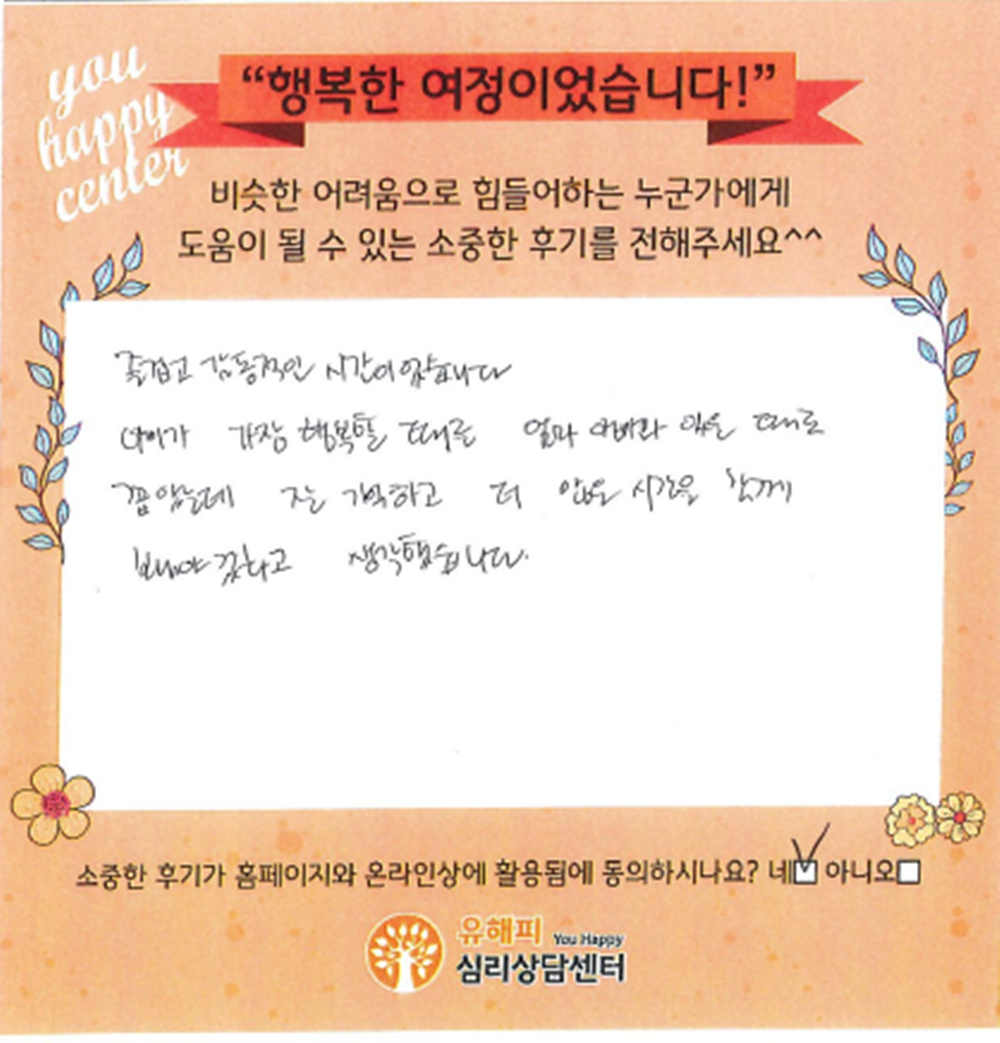 you
happy
center
“행복한 여정이었습니다!”
비슷한 어려움으로 힘들어하는 누군가에게
도움이 될 수 있는 소중한 후기를 전해주세요^^
즐겁고 감동적인 시간이었습니다
아이가 가장 행복할 때를 엄마 아빠와 있을 때로
꼽았는데 잘 기억하고 더 많은 시간을 함께
보내야 겠다고 생각했습니다.
소중한 후기가 홈페이지와 온라인상에 활용됨에 동의하시나요? 네 아니오
유해피 You Happy
심리상담센터